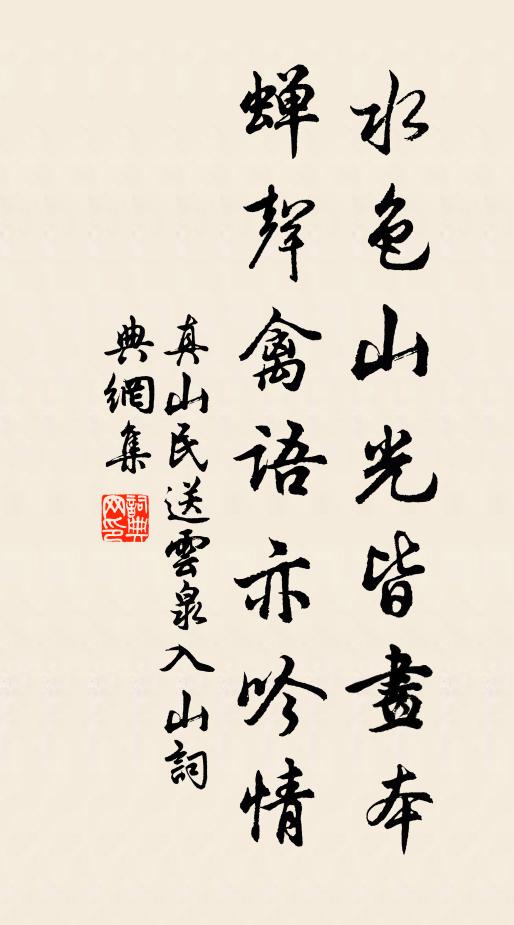 水色山光皆畫本
蟬聲禽語亦吟情
真山民送雲泉入山詞
典網集
詞典網印